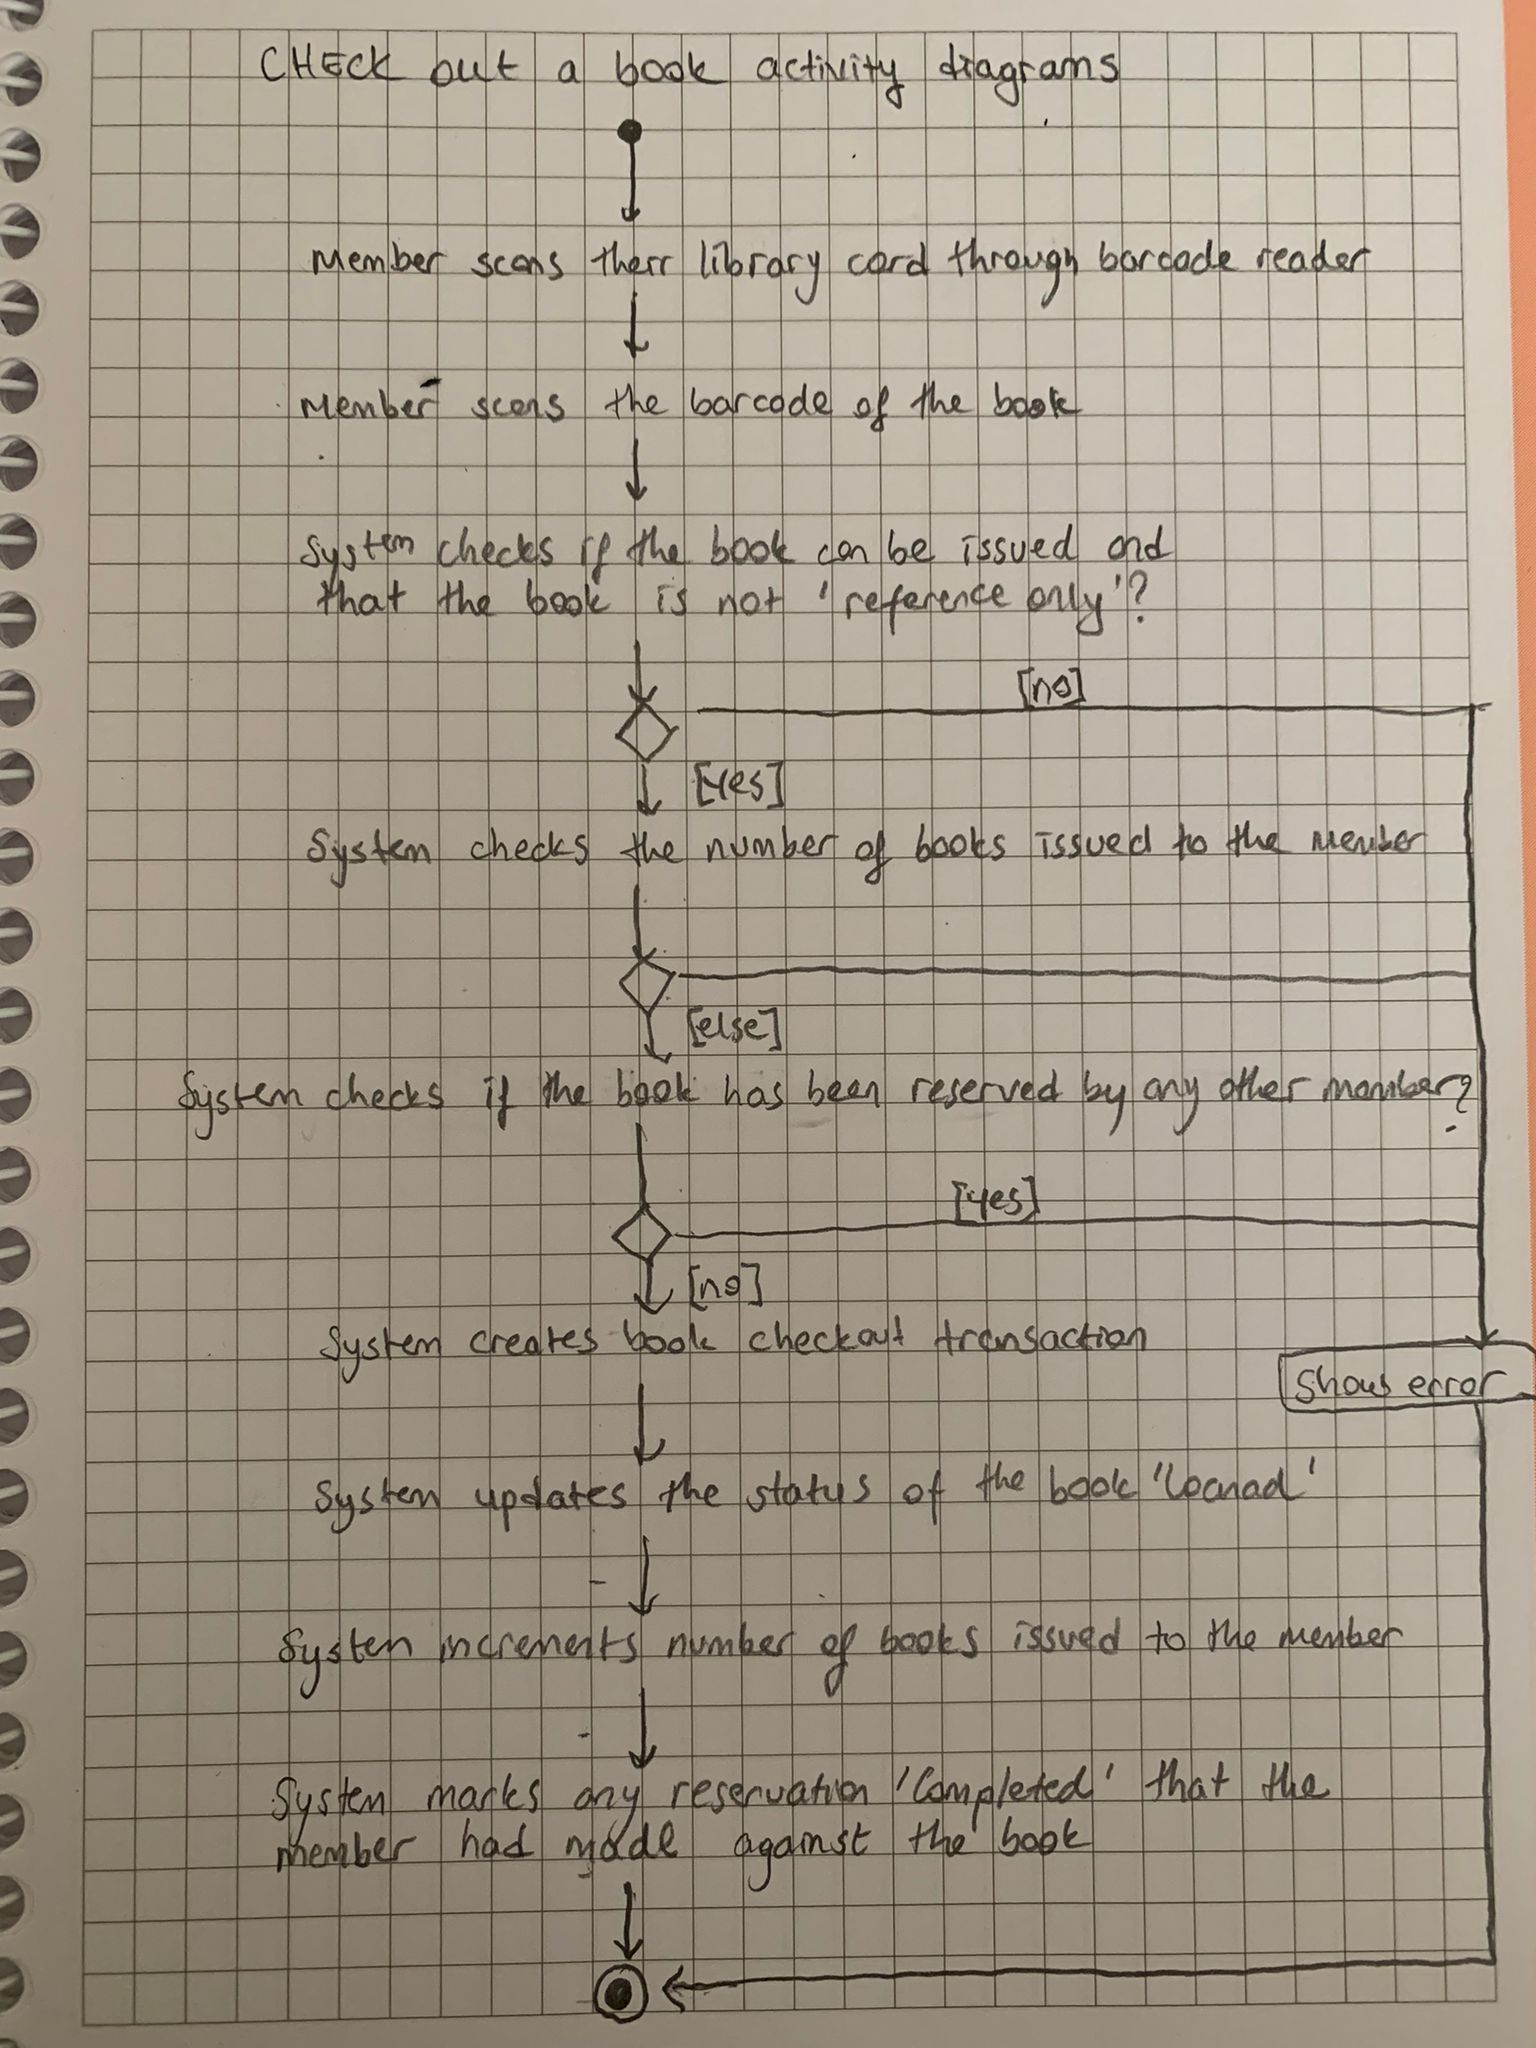 CHECK out a book activity diagrams
Member scans their library card through barcode reader
Member scans the barcode of the book
System checks if the book can be issued and
that the book is not 'reference only'?
[no]
[Yes]
System checks the number of books issued to the member
[else]
System checks if the book has been reserved by any other member?
[Yes]
[no]
System creates book checkout transaction
Show error
System updates the status of the book 'Loanad'
System increments number of books issued to the member
System marks any reservation 'Completed' that the
member had made against the book